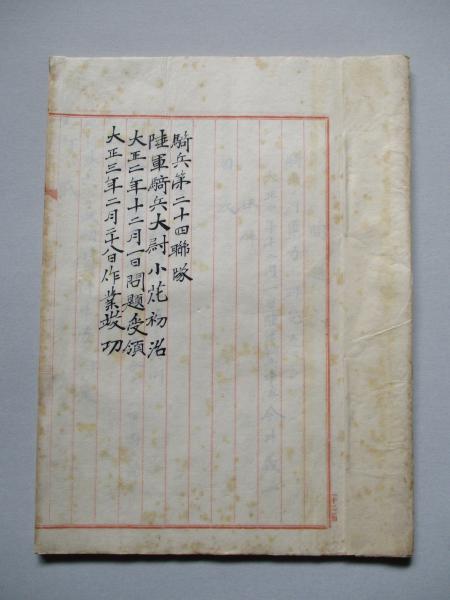 騎兵第二十四聯隊
陸軍騎兵大尉小花初治
大正二年十二月一日問題受領
大正三年二月二十八日作業竣功